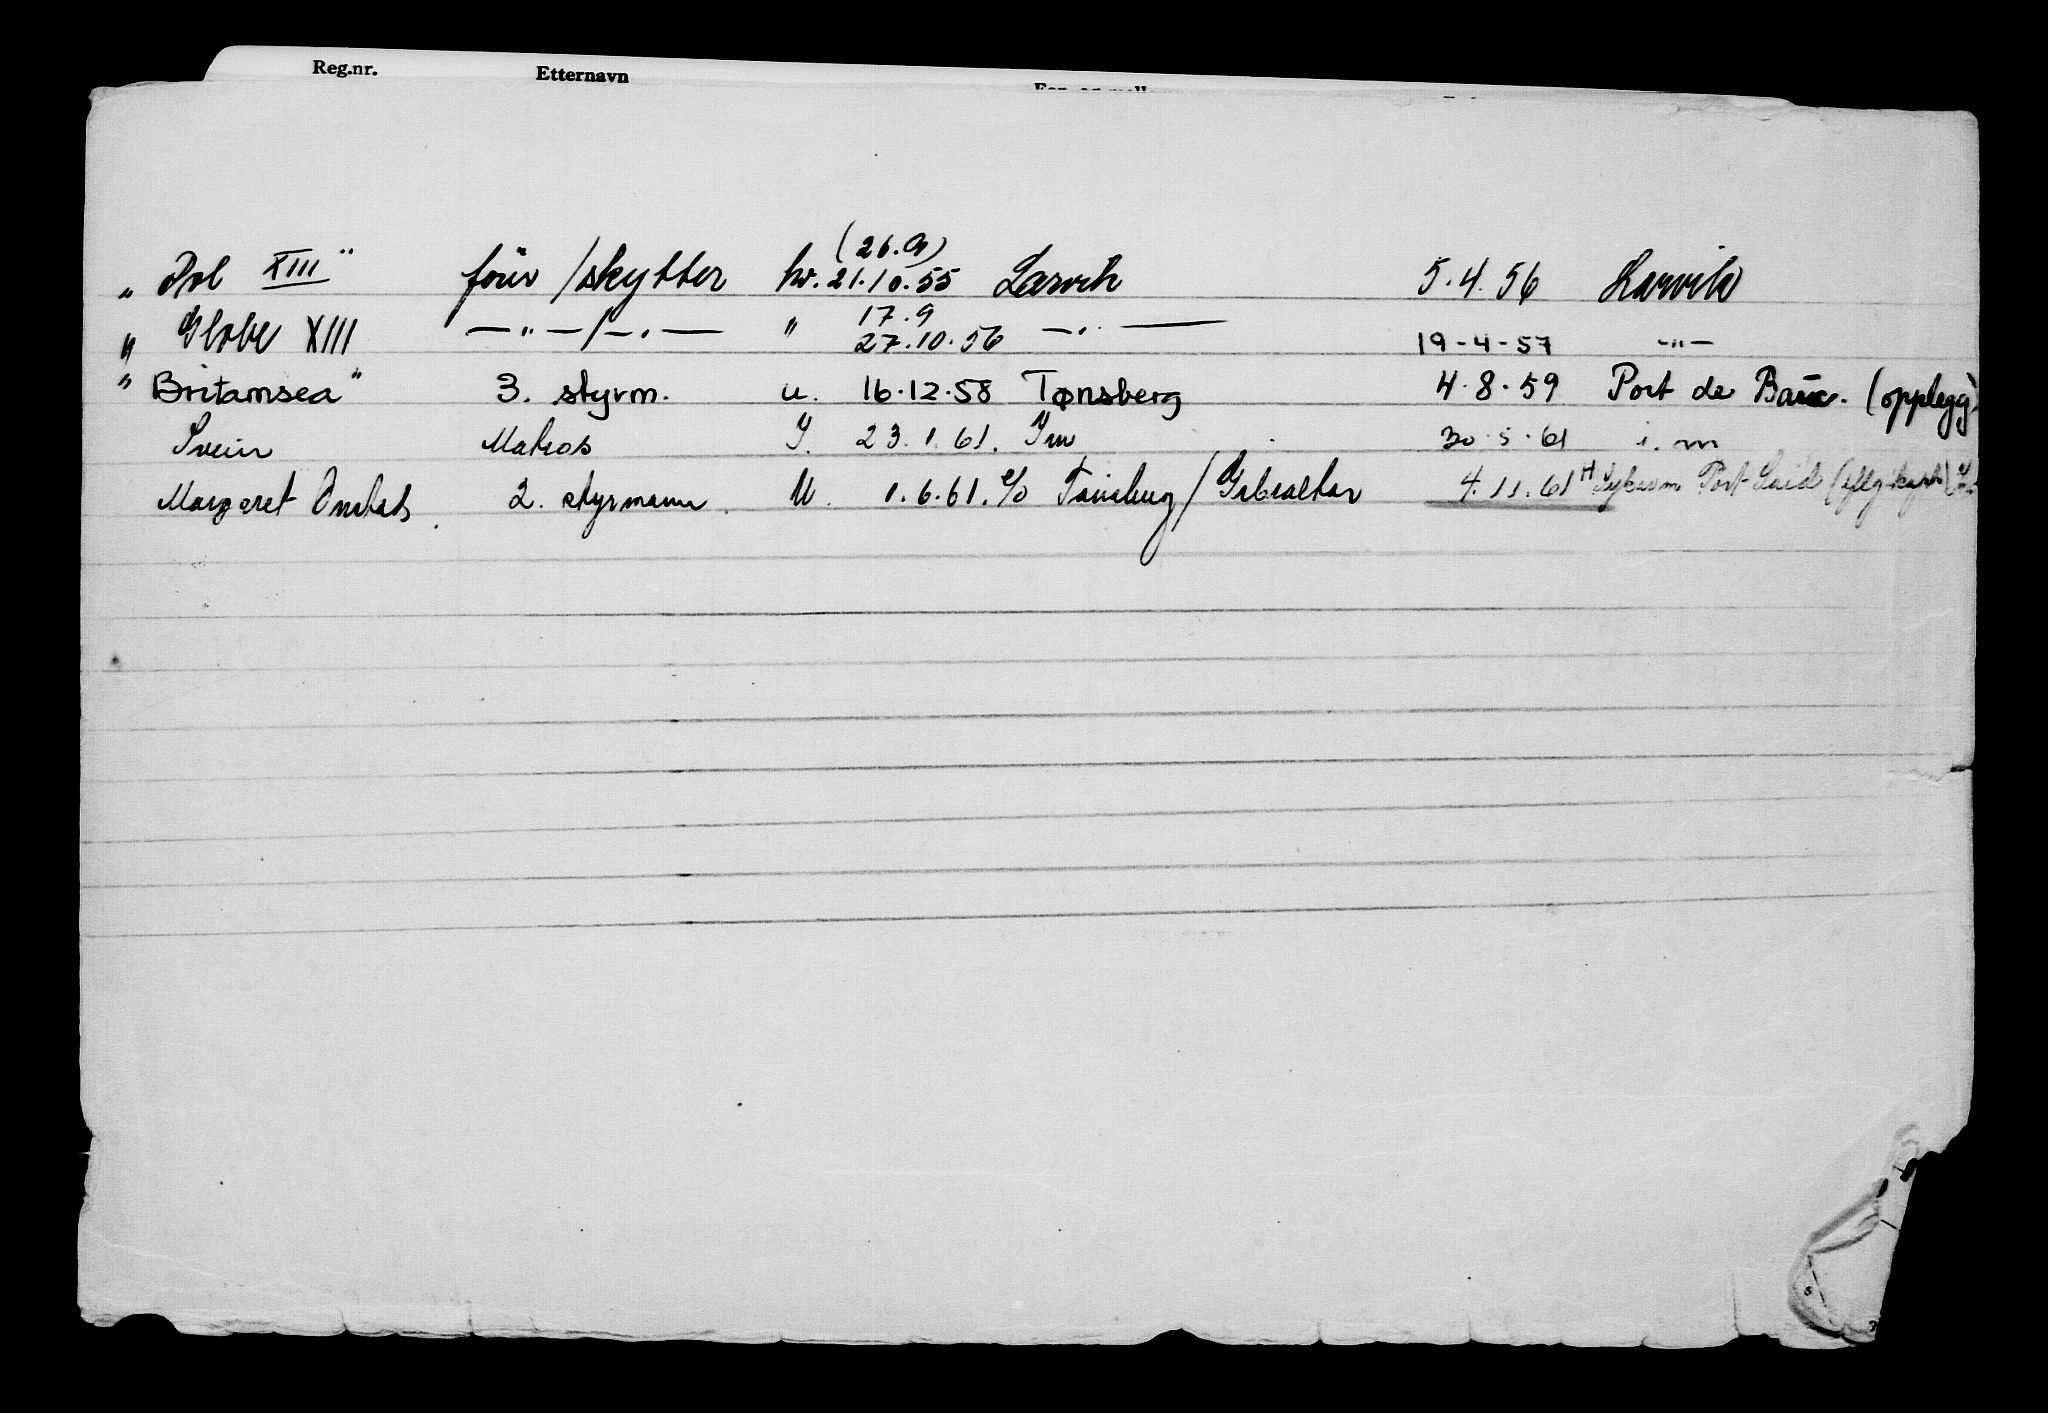 Reg.nr. Etternavn
(26.9)
" Pol XIII" förer/skytter hv. 21.10.55 Larvik 5.4.56 Larvik
17.9
" Globe XIII — " — / — " — " 27.10.56 — " — 19-4-57 — " —
" Britamsea" 3. styrm. u. 16.12.58 Tønsberg 4.8.59 Port de Bouc. (opplegg)
Svein Matros I. 23.1.61. Im 30.5.61 i.m
Margaret Onstad. 2. styrmann. U. 1.6.61. Tønsberg/Gibraltar 4.11.61 Sykdom Port Said